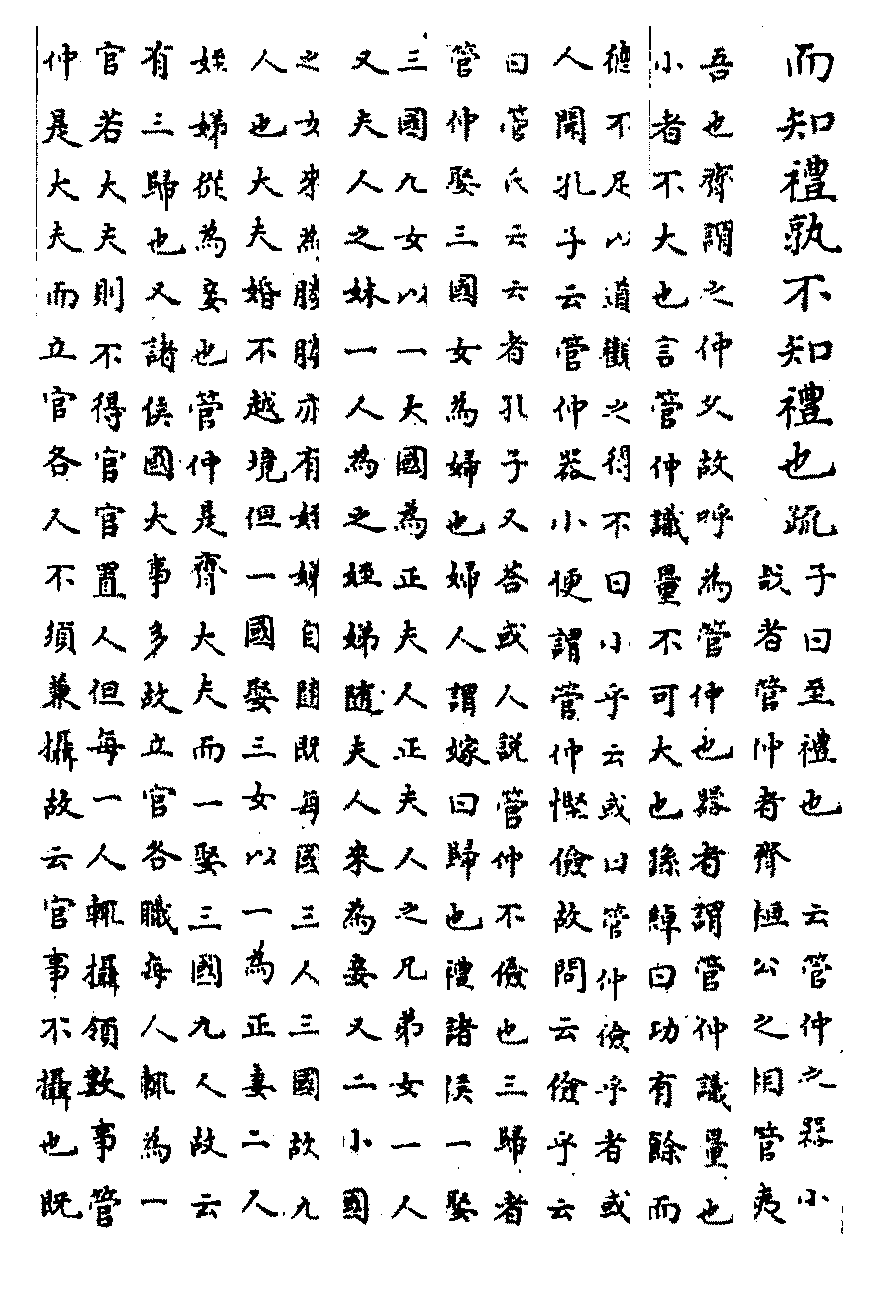 而知禮孰不知禮也疏子曰至禮也 云管仲之器小
哉者管仲者齊桓公之相管夷
吾也齊謂之仲父故呼為管仲也器者謂管仲識量也
小者不大也言管仲識量不可大也孫綽曰功有餘而
德不足以道觀之得不曰小乎云或曰管仲儉乎者或
人聞孔子云管仲器小便謂管仲慳儉故問云儉乎云
曰管氏云云者孔子又荅或人說管仲不儉也三歸者
管仲娶三國女為婦也婦人謂嫁曰歸也禮諸侯一娶
三國九女以一大國為正夫人正夫人之兄弟女一人
又夫人之妹一人為之姪娣隨夫人來為妾又二小國
之女來為媵媵亦有姪娣自隨既每國三人三國故九
人也大夫婚不越境但一國娶三女以一為正妻二人
姪娣從為妾也管仲是齊大夫而一娶三國九人故云
有三歸也又諸侯國大事多故立官各職每人輒為一
官若大夫則不得官官置人但每一人輒攝領數事管
仲是大夫而立官各人不須兼攝故云官事不攝也既